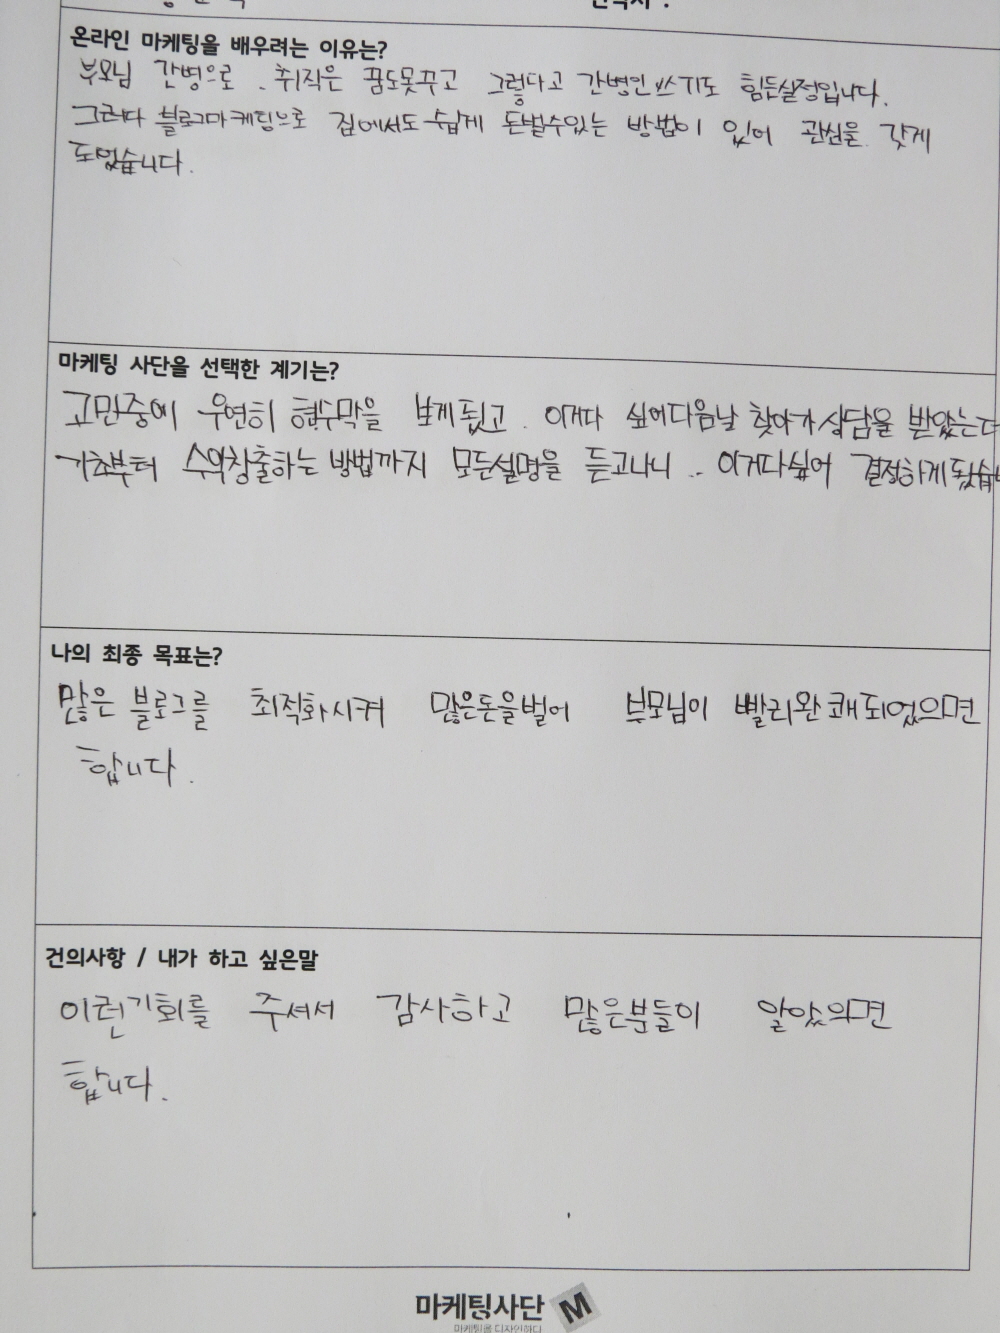 온라인 마케팅을 배우려는 이유는?
부모님 간병으로 . 취직은 꿈도못꾸고 그렇다고 간병인쓰기도 힘든실정입니다.
그러다 블로그마케팅으로 집에서도 쉽게 돈벌수있는 방법이 있어 관심을 갖게
되었습니다.
마케팅 사단을 선택한 계기는?
고민중에 우연히 현수막을 보게됬고 . 이거다 싶어다음날 찾아가상담을 받았는데
기초부터 수익창출하는 방법까지 모든설명을 듣고나니 .. 이거다싶어 결정하게됬습니
나의 최종 목표는?
많은 블로그를 최적화시켜 많은돈을벌어 부모님이 빨리완쾌되었으면
합니다.
건의사항 / 내가 하고 싶은말
이런기회를 주셔서 감사하고 많은분들이 알았의면
합니다.
마케팅사단 M
마케팅을 디자인하다